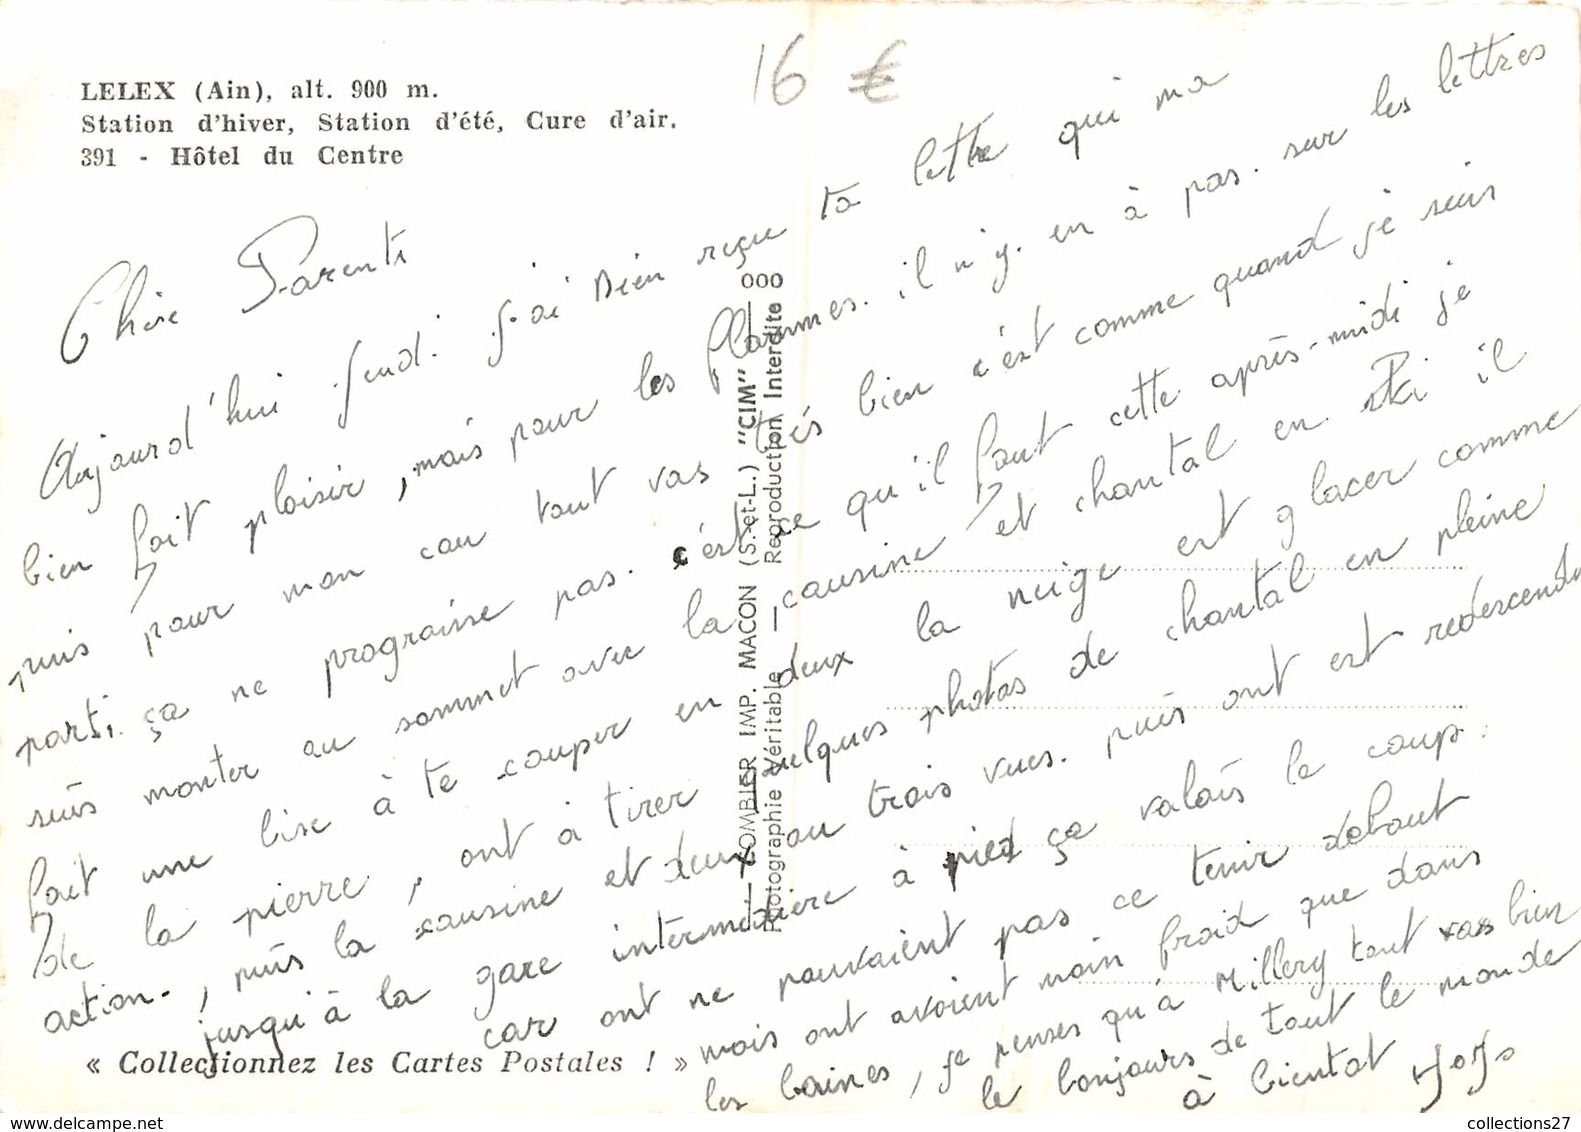 LELEX (Ain), alt. 900 m.
Station d'hiver, Station d'été, Cure d'air.
391 - Hôtel du Centre
16 €
Chère Parents
Aujourd'hui Jeudi. J'ai bien reçue ta lettre qui ma
bien fait plaisir, mais pour les flammes. il n'y. en à pas. sur les lettres
puis pour mon cau tout vas très bien c'est comme quand je suis
parti. ça ne prograisse pas. c'est ce qu'il faut cette après-midi je
suis monter au sommet avec la causine et chantal en ski il
fait une bise à te couper en deux la neige est glacer comme
de la pierre, ont à tirer quelques photos de chantal en pleine
action-, puis la causine et deux au trois vues. puis ont est redescendu
jusqu'à la gare intermédière à pied ça valais le coup.
car ont ne pouvaient pas ce tenir debout
mais ont avaient moin froid que dans
les baines, je penses qu'à Millery tout vas bien
le bonjours de tout le monde
à bientot JoJo
COMBIER IMP. MACON (S.-et-L.) "CIM"
Photographie Véritable — Reproduction Interdite
000
« Collectionnez les Cartes Postales ! »
collections27